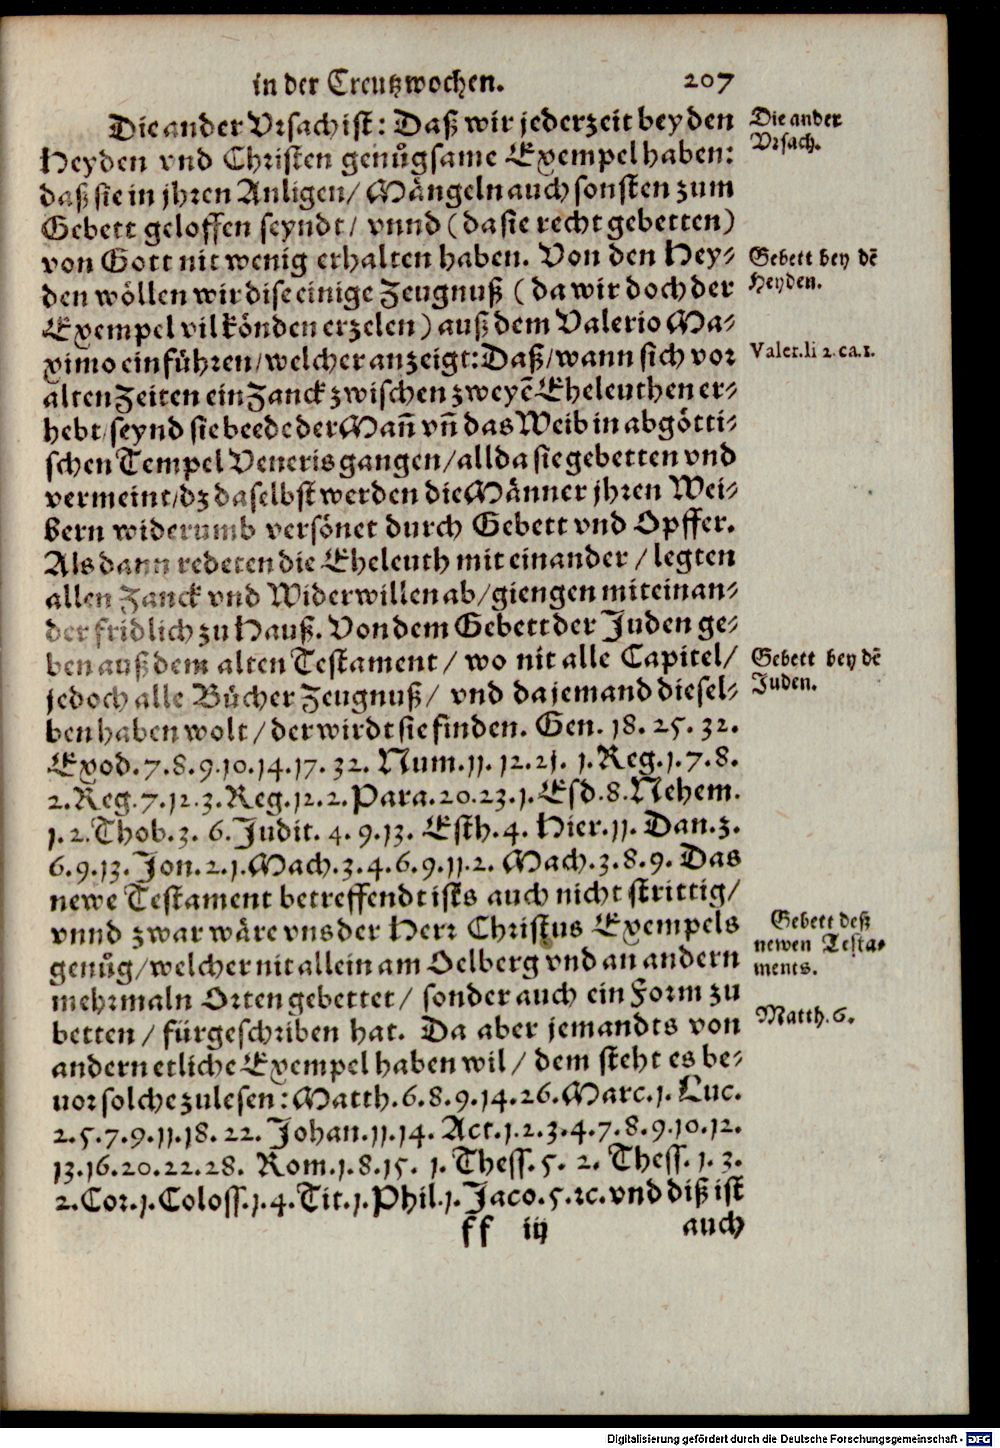 in der Creutzwochen. 207
Die ander Vrsach ist: Daß wir jederzeit bey den
Heyden vnd Christen genůgsame Exempel haben:
daß sie in jhren Anligen/ Mängeln auch sonsten zum
Gebett geloffen seyndt/ vnnd (da sie recht gebetten)
von Gott nit wenig erhalten haben. Von den Hey-
den wöllen wir dise einige Zeugnuß (da wir doch der
Exempel vil könden erzelen) auß dem Valerio Ma-
ximo einführen/welcher anzeigt: Daß/wann sich vor
alten Zeiten ein Zanck zwischen zweyẽ Eheleuthen er-
hebt/seynd sie beede der Mañ vñ das Weib in abgötti-
schen Tempel Veneris gangen/allda sie gebetten vnd
vermeint/dz daselbst werden die Männer jhren Wei-
bern widerumb versönet durch Gebett vnd Opffer.
Als dann redeten die Eheleuth mit einander/ legten
allen Zanck vnd Widerwillen ab/giengen mit einan-
der fridlich zu Hauß. Von dem Gebett der Juden ge-
ben auß dem alten Testament/ wo nit alle Capitel/
jedoch alle Bücher Zeugnuß/ vnd da jemand diesel-
ben haben wolt/ der wirdt sie finden. Gen. 18. 25. 32.
Exod. 7. 8. 9. 10. 14. 17. 32. Num. 11. 12. 21. 1. Reg. 1. 7. 8.
2. Reg. 7. 12. 3. Reg. 12. 2. Para. 20. 23. 1. Esd. 8. Nehem.
1. 2. Thob. 3. 6. Judit. 4. 9. 13. Esth. 4. Hier. 11. Dan. 3.
6. 9. 13. Jon. 2. 1. Mach. 3. 4. 6. 9. 11. 2. Mach. 3. 8. 9. Das
newe Testament betreffendt ists auch nicht strittig/
vnnd zwar wäre vns der Herr Christus Exempels
genůg/welcher nit allein am Oelberg vnd an andern
mehrmaln Orten gebettet/ sonder auch ein Form zu
betten/ fürgeschriben hat. Da aber jemandts von
andern etliche Exempel haben wil/ dem steht es be-
uor solche zulesen: Matth. 6. 8. 9. 14. 26. Marc. 1. Luc.
2. 5. 7. 9. 11. 18. 22. Johan. 11. 14. Act. 1. 2. 3. 4. 7. 8. 9. 10. 12.
13. 16. 20. 22. 28. Rom. 1. 8. 15. 1. Thess. 5. 2. Thess. 1. 3.
2. Cor. 1. Coloss. 1. 4. Tit. 1. Phil. 1. Jaco. 5. ꝛc. vnd diß ist
ff iij auch
Die ander
Vrsach.
Gebett bey dẽ
Heyden.
Valer. li 2. ca. 1.
Gebett bey dẽ
Juden.
Gebett deß
newen Testa-
ments.
Matth. 6.
Digitalisierung gefördert durch die Deutsche Forschungsgemeinschaft - DFG